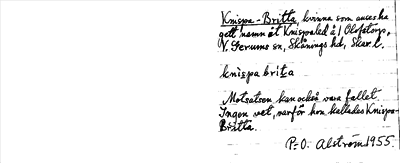 Knispa-Britta, kvinna som anses ha
gett namn åt Knispaled å 1 Olofstorp,
N. Serums sn, Skånings hd, Skar. l.
knispa brita
Motsatsen kan också vara fallet.
Ingen vet, varför hon kallades Knispa-
Britta.
P.-O. Alström 1955.